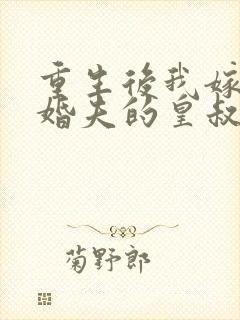 重生後我嫁
婚夫的皇叔
菊野郎